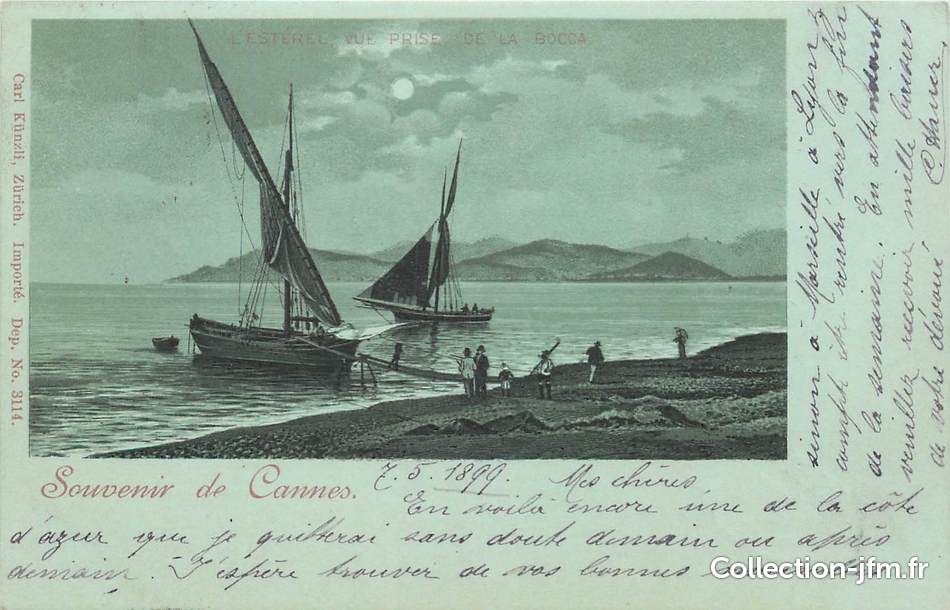 L'ESTÉREL VUE PRISE DE LA BOCCA.
Carl Künzli, Zürich. Importé. Dep. No. 3114.
Souvenir de Cannes.
7.5.1899. Mes chères
En voilà encore une de la côte
d'azur que je quitterai sans doute demain ou après
demain. J'espère trouver de vos bonnes
sinon à Marseille à Lyon. Je
compte être rentré vers la fin
de la semaine. En attendant
veuillez recevoir mille baisers
de votre dévoué
Collection-jfm.fr